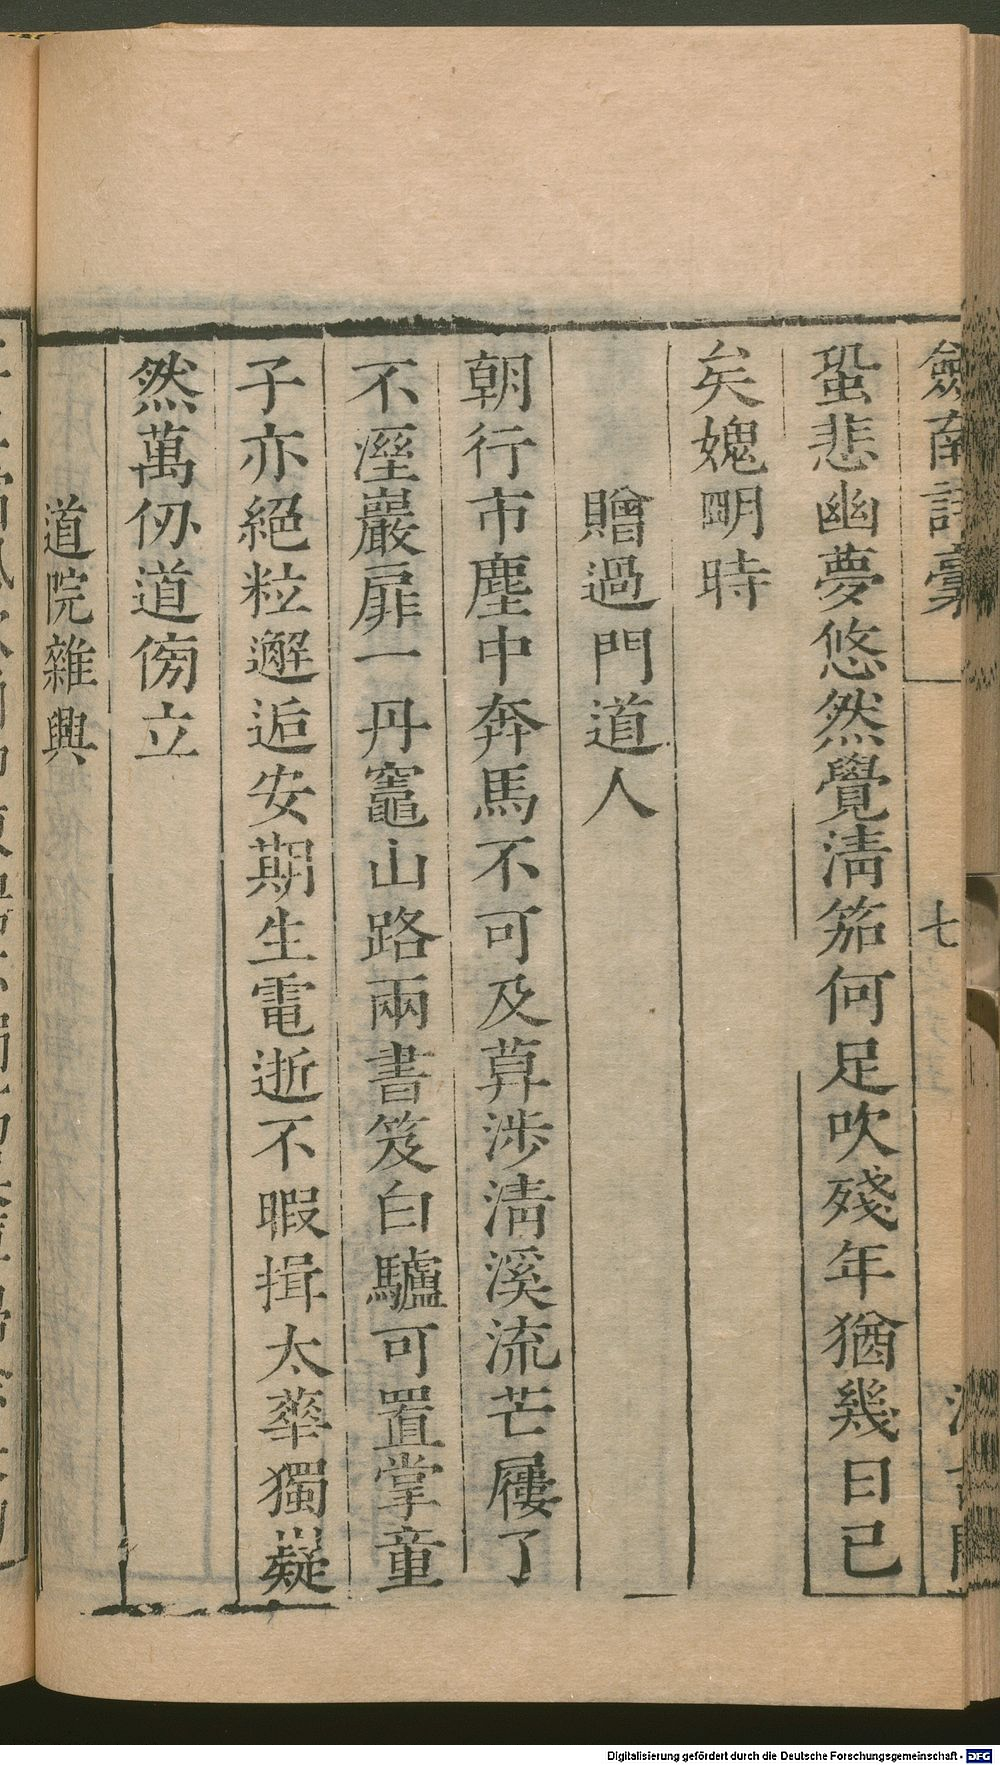 劍南詩稾
七
蛩悲幽夢悠然覺淸笳何足吹殘年猶幾日已
矣媿明時
贈過門道人
朝行市塵中奔馬不可及莫涉淸溪流芒屨了
不溼巖扉一丹竈山路兩書笈白驢可置掌童
子亦絕粒邂逅安期生電逝不暇揖太華獨嶷
然萬仞道傍立
道院雜興
Digitalisierung gefördert durch die Deutsche Forschungsgemeinschaft - DFG